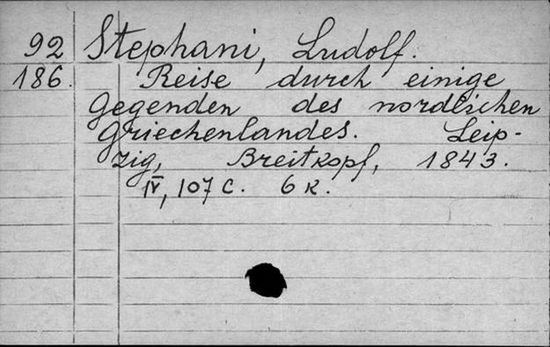 92 Stephani, Ludolf.
186. Reise durch einige
Gegenden des nordlichen
Griechenlandes. Leip-
zig, Breitkopf, 1843.
IV, 107 с. 6 к.